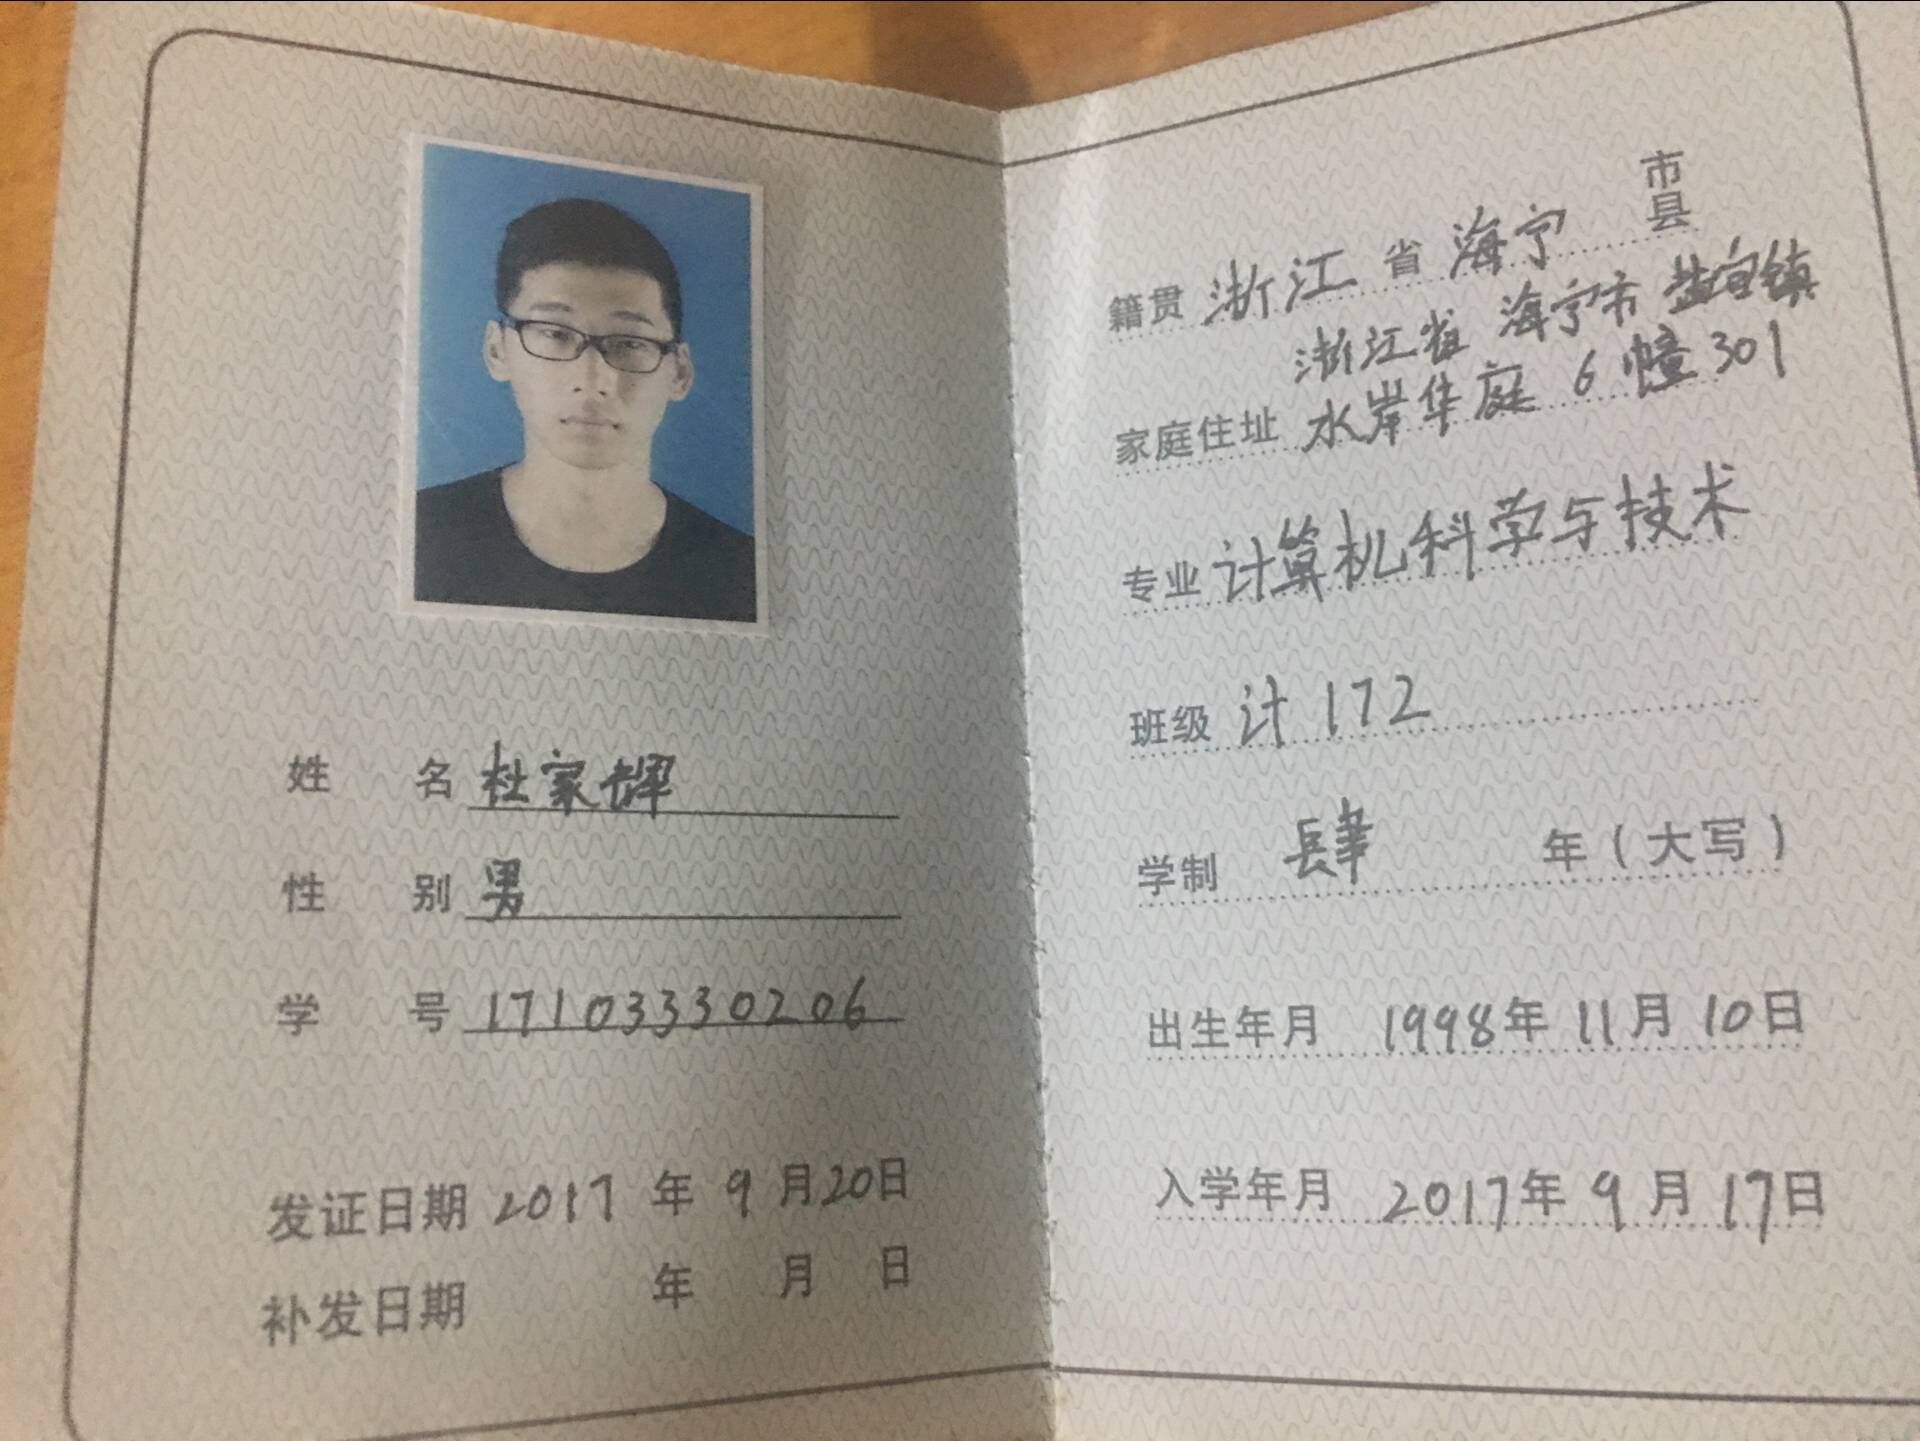 姓 名 杜家
性 别 男
学 号 171033330206
发证日期 2017 年 9 月 20 日
补发日期 年 月 日
市
县
籍贯 浙江 省 海宁
浙江省 海宁市 盐官镇
家庭住址 水岸华庭 6 幢 301
专业 计算机科学与技术
班级 计 172
学制 肆 年（大写）
出生年月 1998年 11月 10日
入学年月 2017年 9 月 17日